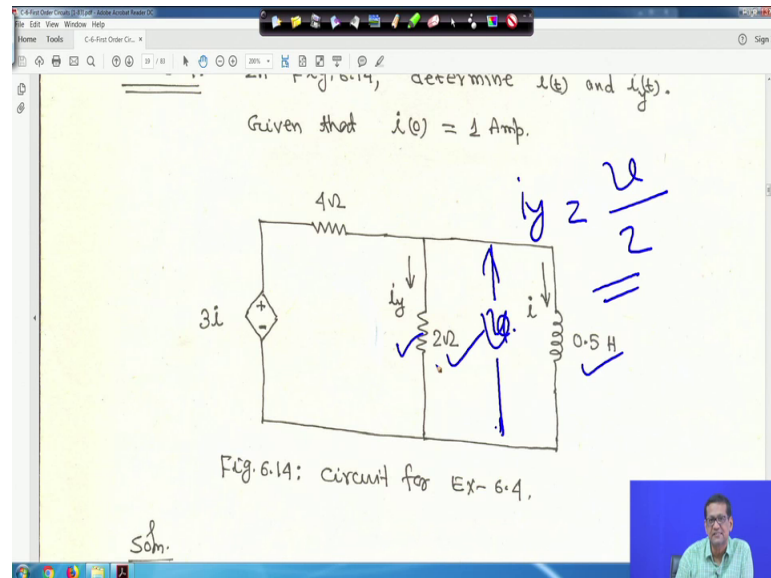 C-6-First Order Circuits (1-83).pdf - Adobe Acrobat Reader DC
File Edit View Window Help
Home Tools C-6-First Order Cir... × Sign
19 / 83 200%
In Fig. 6.14, determine i(t) and iy(t).
Given that i(0) = 1 Amp.
iy = v/2
4Ω
3i
+
-
iy
2Ω
v
i
0.5 H
Fig. 6.14: Circuit for Ex- 6.4.
Soln.